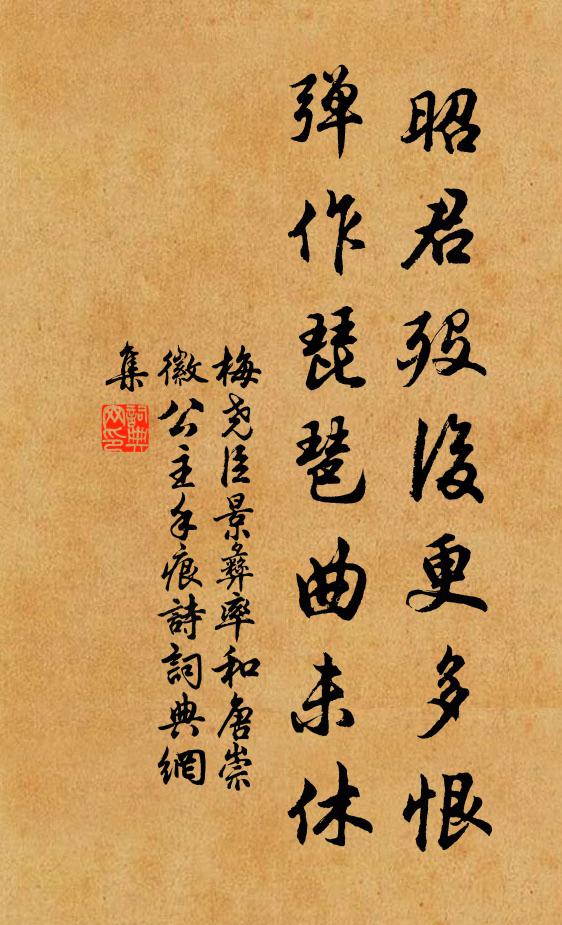 昭君殁後更多恨
弹作琵琶曲未休
梅尧臣景彝率和唐崇
徽公主手痕詩詞典網
集
詞典网印